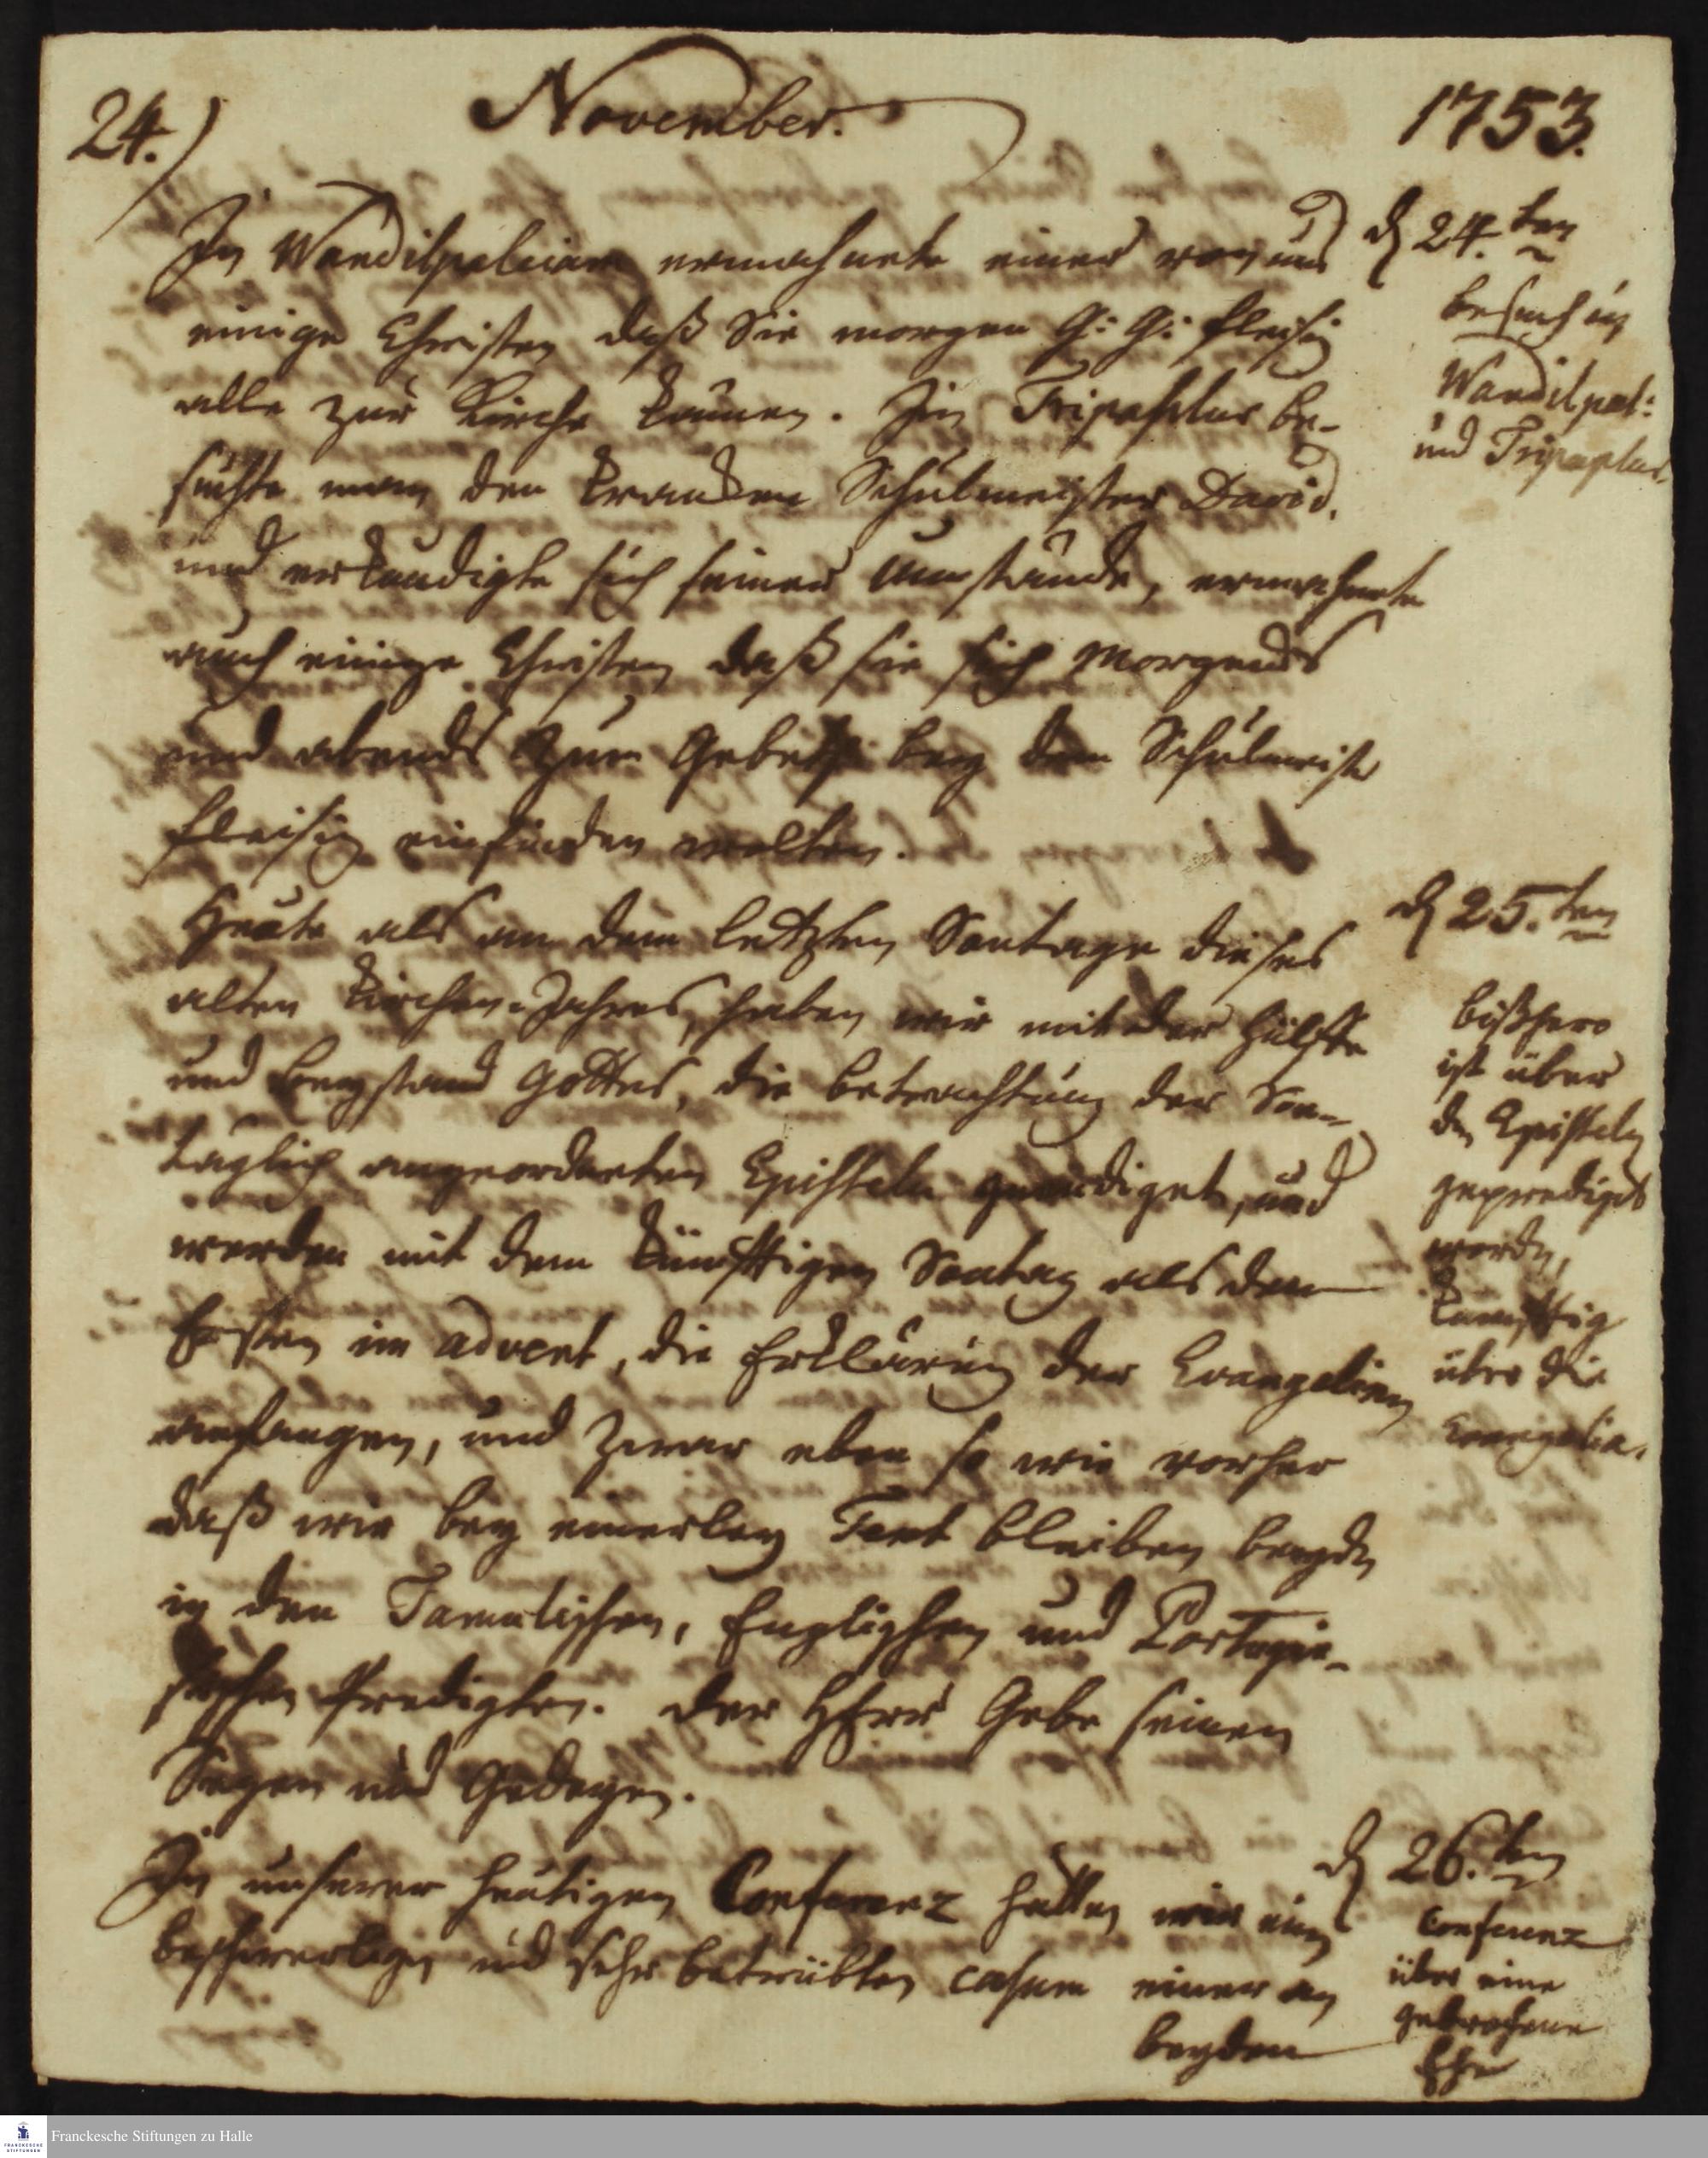 24.)
November.
1753.
In Wandilpaleiam ermahnete einer von uns
einige Christen daß Sie morgen G: G: fleisig
alle zur Kirche kämen. In Tripaplur be-
suchte man den krancken Schulmeister David,
und erkundigte sich seiner Umstände, ermahnete
auch einige Christen daß sie sich Morgends
und abends zum Gebeth bey dem Schulmeister
fleisig einfinden wolten.
Heute als an dem letzten Sontage dieses
alten Kirchen-Jahres, haben wir mit der Hülffe
und Beystand Gottes, die betrachtung der Son-
täglich angeordneten Episteln geendiget, und
werden mit dem künfftigen Sontag als dem
Ersten im advent, die Erklärung der Evangelien
anfangen, und zwar eben so wie vorher
daß wir bey einerley Text bleiben beydes
in den Tamulischen, Englischen und Portugie-
sischen Predigten. Der HErr Gebe seinen
Segen und Gedeyen.
In unserer heutigen Conferenz hatten wir einen
beschwerlichen und sehr betrübten casum einer an
beyden
d 24.ten
besuch in
Wandilpal:
und Tripaplur.
d 25.ten
bißhero
ist über
den Episteln
geprediget
worden,
künfftig
über die
Evangelia.
d 26.ten
Conferenz
über eine
gebrochene
Ehe
Franckesche Stiftungen zu Halle
FRANCKESCHE
STIFTUNGEN